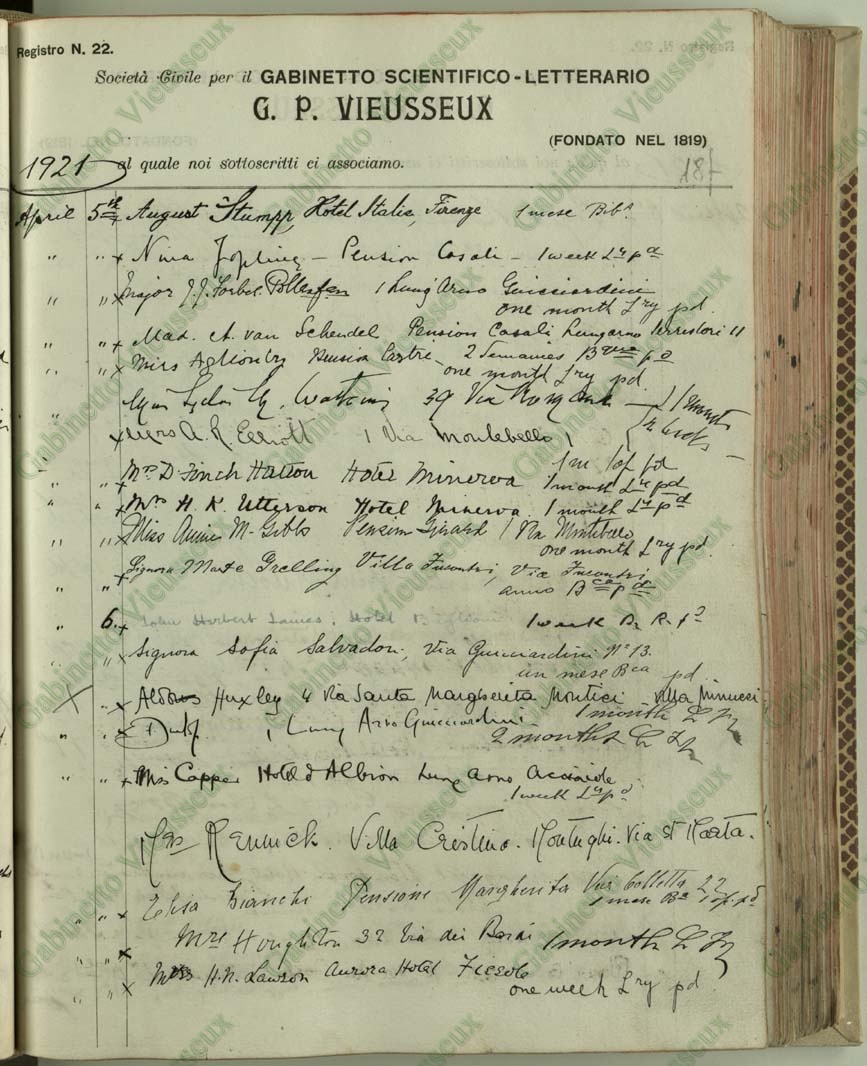 Registro N. 22.
Società Civile per il GABINETTO SCIENTIFICO-LETTERARIO
G. P. VIEUSSEUX
(FONDATO NEL 1819)
1921 al quale noi sottoscritti ci associamo.
187
April 5th x August Stumpp, Hotel Italie, Firenze 1 mese Bibª
" " x Nina Jopling - Pension Casali - 1 week Lʸ pᵈ
" " x Major J.J. 1 Lung'Arno Guicciardini
one month Lry pd.
" " x Mad. A. van Schendel Pension Casali Lungarno 11
" " x Miss Aglionby Pension 2 Semaines pd
one month Lry pd
" Watkins 39 Via Romana 1 Month
x Mrs A. R. Elliott 1 Via Montebello 1
1m pd
" " x Mrs D. Finch Hatton Hotel Minerva 1 month Lʸ pd
" " x Mrs H. K. Utterson Hotel Minerva. 1 month Lʸ pᵈ
" " x Miss M. Gibbs Pension Girard 1 Via Montebello
one month Lry pd.
" " x Signora Grelling Villa Incontri, Via Incontri
anno Bca pd
" 6. x John Herbert James, Hotel 1 week
" " x Signora Sofia Salvadori, Via Guicciardini Nº 13.
un mese Bca pd
X " x Aldous Huxley 4 Via Santa Margherita Montici Villa Minucci
1 month
" " x 1 Lung Arno Guicciardini
2 months
" " x Miss Capper Hotel d'Albion Lung Arno Acciaiole
1 week Lʸ pᵈ
Mrs Rennick. Villa Cristina. Montughi. Via St Marta.
" " x Elisa Bianchi Pensione Margherita Via Colletta 22
1 mese Bª 1 op. pd
x Mrs Houghton 32 Via dei Bardi 1 month
x Miss H. N. Lawson Aurora Hotel Fiesole
one week Lry pd.
Gabinetto Vieusseux